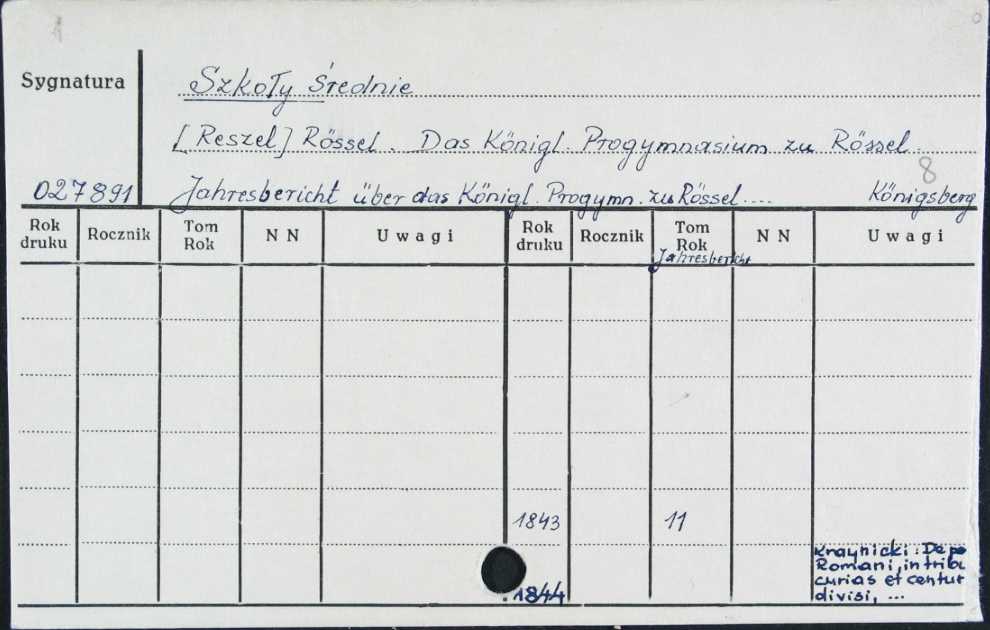 Szkoły średnie
Sygnatura
[Reszel] Rössel. Das Königl. Progymnasium zu Rössel.
8
027891 Jahresbericht über das Königl. Progymn. zu Rössel.... Königsberg
Rok druku Rocznik Tom Rok NN Uwagi Rok druku Rocznik Tom Rok NN Uwagi
Jahresbericht
1843 11
Kraynicki: De po
Romani, in tribu
curias et centur
1844 divisi, ...